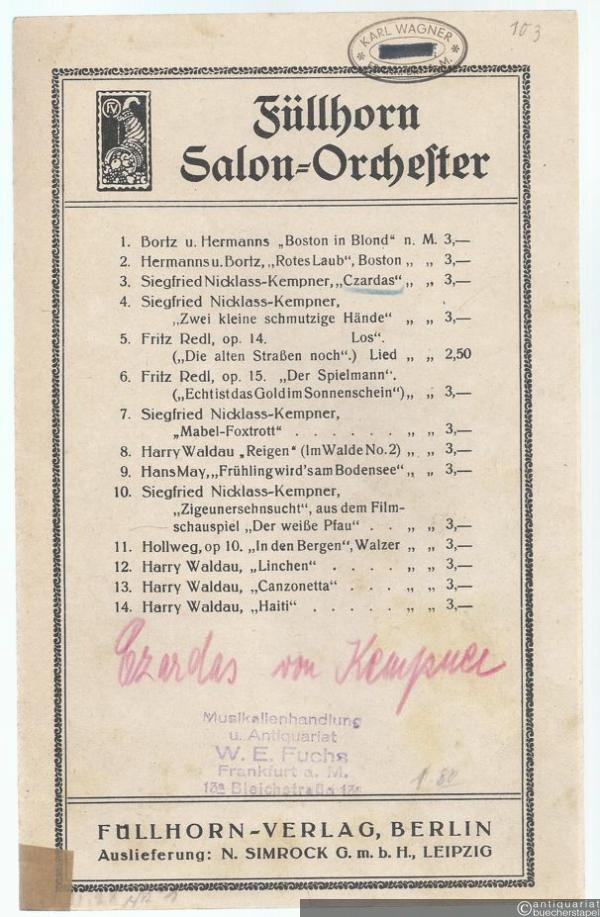 KARL WAGNER
103
FV
Füllhorn
Salon=Orchester
1. Bortz u. Hermanns „Boston in Blond“ n. M. 3,—
2. Hermanns u. Bortz, „Rotes Laub“, Boston „ „ 3,—
3. Siegfried Nicklass-Kempner, „Czardas“ „ „ 3,—
4. Siegfried Nicklass-Kempner,
„Zwei kleine schmutzige Hände“ „ „ 3,—
5. Fritz Redl, op. 14. Los“.
(„Die alten Straßen noch“.) Lied „ „ 2,50
6. Fritz Redl, op. 15. „Der Spielmann“.
(„Echt ist das Gold im Sonnenschein“) „ „ 3,—
7. Siegfried Nicklass-Kempner,
„Mabel-Foxtrott“ . . . . . . „ „ 3,—
8. Harry Waldau „Reigen“ (Im Walde No. 2) „ „ 3,—
9. Hans May, „Frühling wird's am Bodensee“ „ „ 3,—
10. Siegfried Nicklass-Kempner,
„Zigeunersehnsucht“, aus dem Film-
schauspiel „Der weiße Pfau“ . . „ „ 3,—
11. Hollweg, op 10. „In den Bergen“, Walzer „ „ 3,—
12. Harry Waldau, „Linchen“ . . . . „ „ 3,—
13. Harry Waldau, „Canzonetta“ . . . „ „ 3,—
14. Harry Waldau, „Haiti“ . . . . . „ „ 3,—
Czardas von Kempner
Musikalienhandlung
u. Antiquariat
W. E. Fuchs
Frankfurt a. M.
13a Bleichstraße 13a
1.80
FÜLLHORN-VERLAG, BERLIN
Auslieferung: N. SIMROCK G. m. b. H., LEIPZIG
antiquariat
buecherstapel